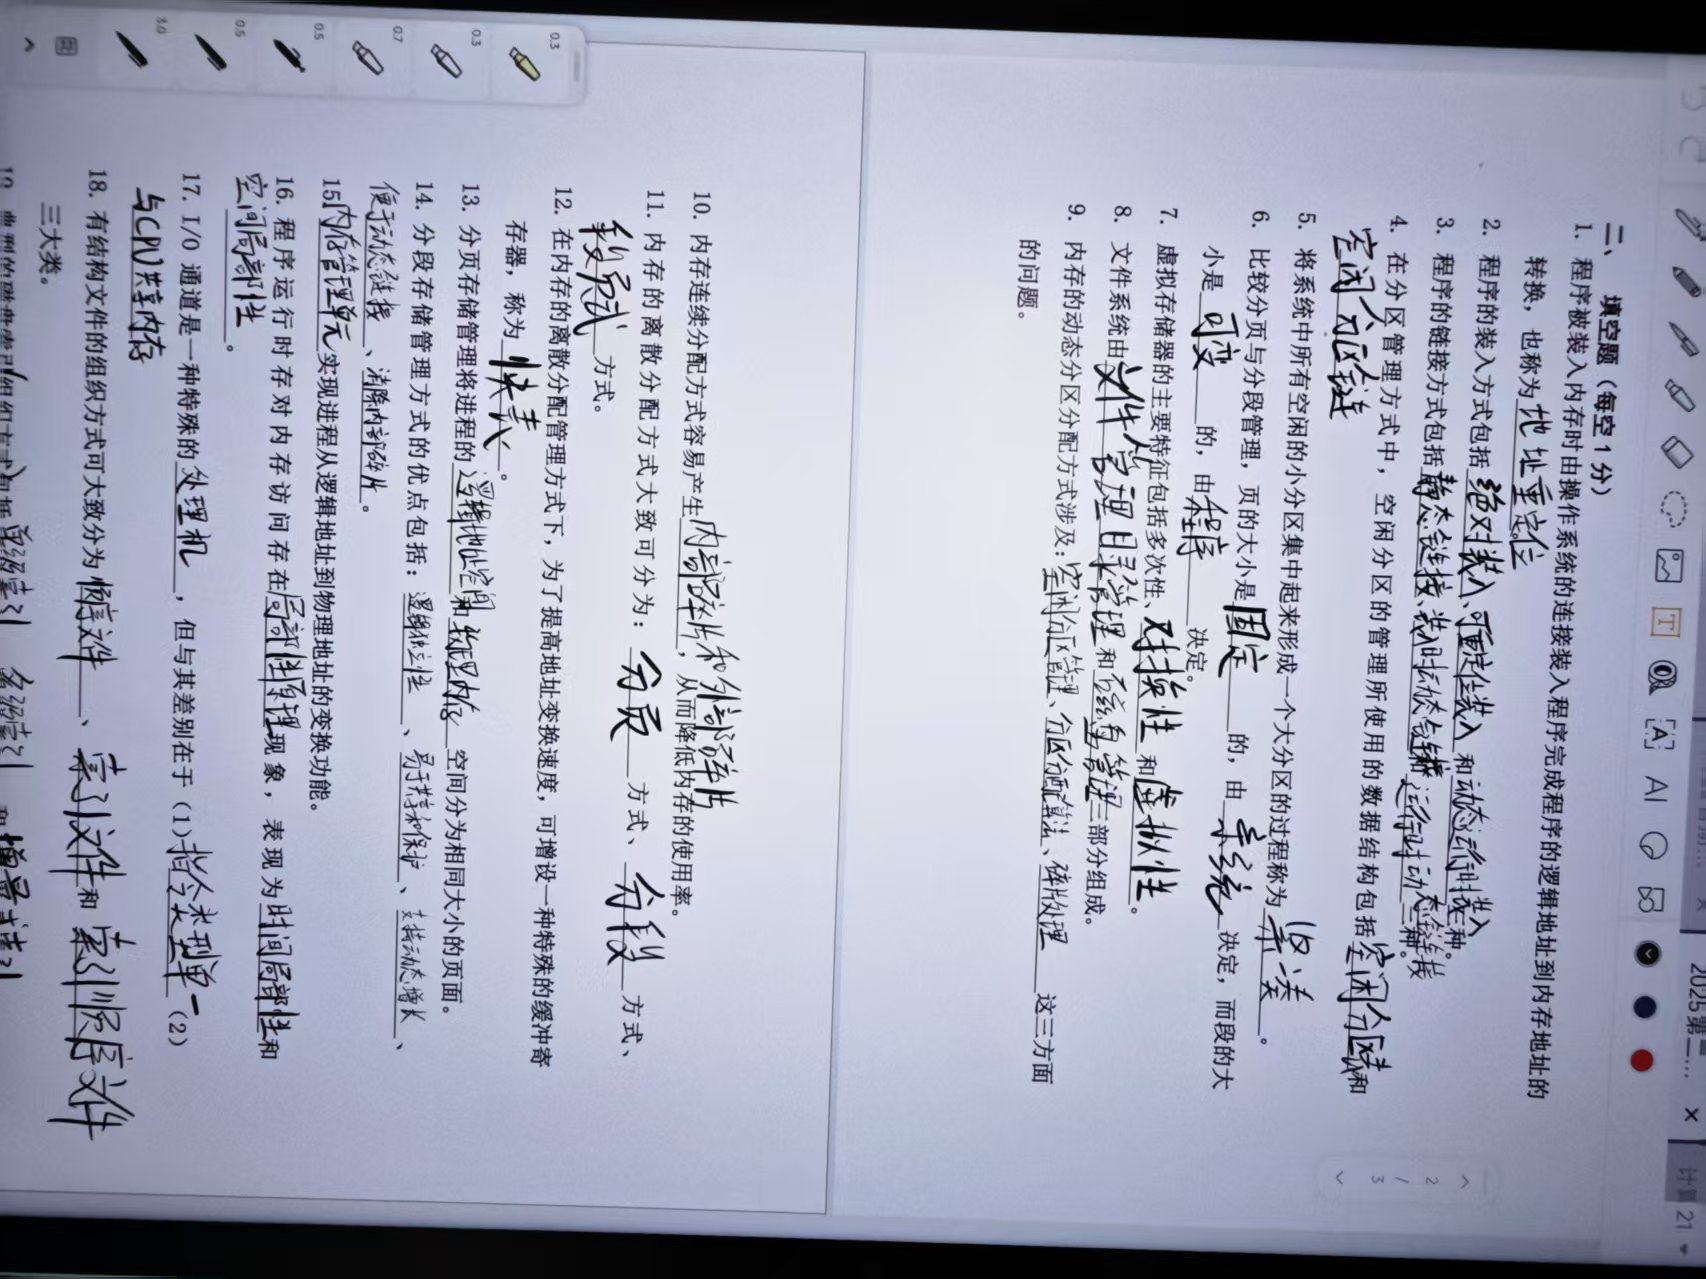 2025第二…
×
计算
21
2 / 3
二、 填空题（每空 1 分）
1. 程序被装入内存时由操作系统的连接装入程序完成程序的逻辑地址到内存地址的
转换，也称为 地址重定位
2. 程序的装入方式包括 绝对装入、可重定位装入 和 动态运行时装入 三种。
3. 程序的链接方式包括 静态链接、装入时动态链接 运行时动态链接 三种。
4. 在分区管理方式中，空闲分区的管理所使用的数据结构包括 空闲分区表 和
空闲分区链
5. 将系统中所有空闲的小分区集中起来形成一个大分区的过程称为 紧凑 。
6. 比较分页与分段管理，页的大小是 固定 的，由 系统 决定，而段的大
小是 可变 的，由 程序 决定。
7. 虚拟存储器的主要特征包括多次性、 对换性 和 虚拟性 。
8. 文件系统由 文件管理 目录管理 和 三部分组成。
9. 内存的动态分区分配方式涉及：空闲分区管理、分区分配算法、碎片处理 这三方面
的问题。
10. 内存连续分配方式容易产生 内部碎片和外部碎片 ，从而降低内存的使用率。
11. 内存的离散分配方式大致可分为： 分页 方式、 分段 方式、
段页式 方式。
12. 在内存的离散分配管理方式下，为了提高地址变换速度，可增设一种特殊的缓冲寄
存器，称为 快表 。
13. 分页存储管理将进程的 逻辑地址空间 和 物理内存 空间分为相同大小的页面。
14. 分段存储管理方式的优点包括： 逻辑独立性 、 易于共享和保护 、 支持动态增长 、
便于动态链接 、 消除内部碎片 。
15. 内存管理单元 实现进程从逻辑地址到物理地址的变换功能。
16. 程序运行时存对内存访问存在 局部性原理 现象，表现为 时间局部性 和
空间局部性 。
17. I/O 通道是一种特殊的 处理机 ，但与其差别在于（1） 指令类型单一 （2）
与CPU共享内存
18. 有结构文件的组织方式可大致分为 顺序文件 、 索引文件 和 索引顺序文件
三大类。
0.3
0.3
0.7
0.5
0.5
3.0